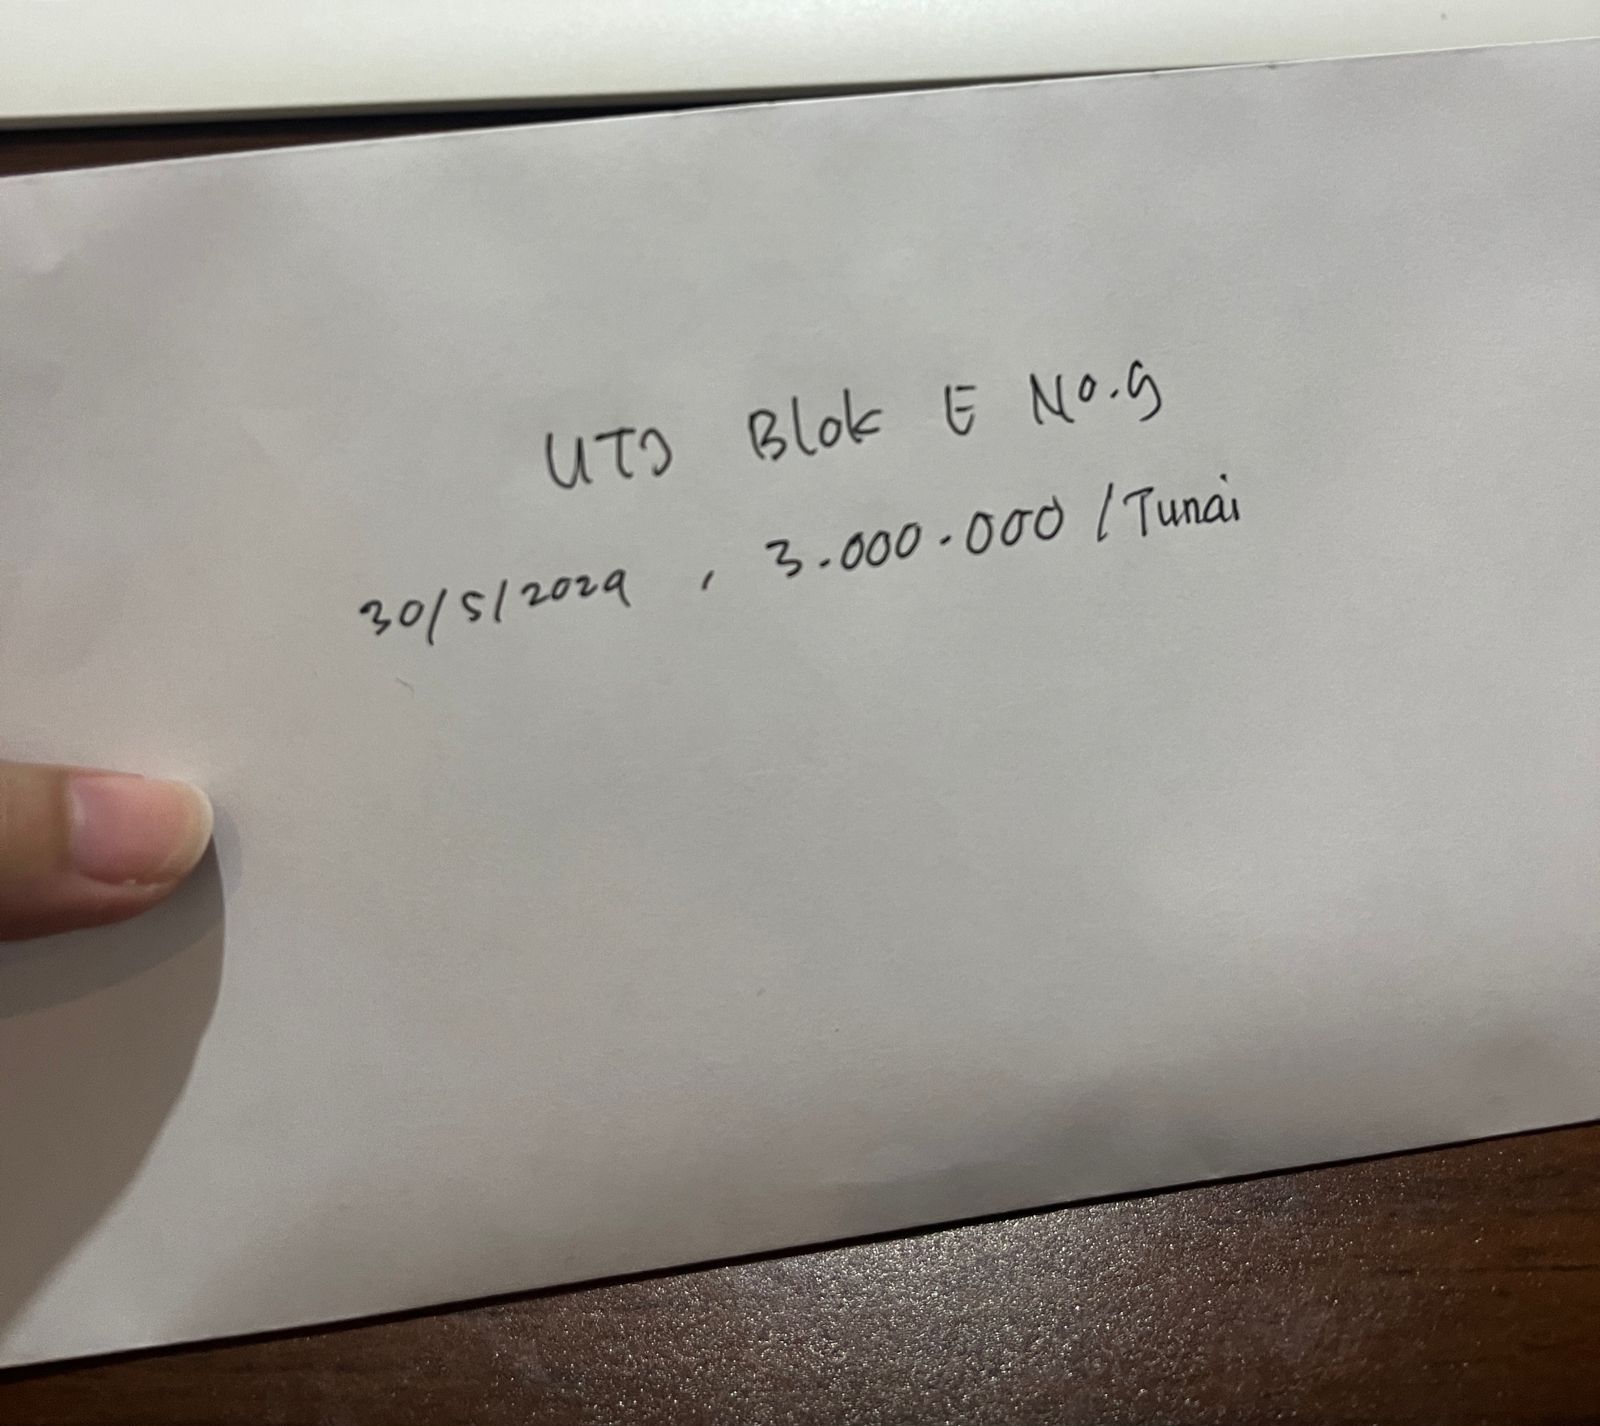 UTJ Blok E No.9
30/5/2024 , 3.000.000 / Tunai